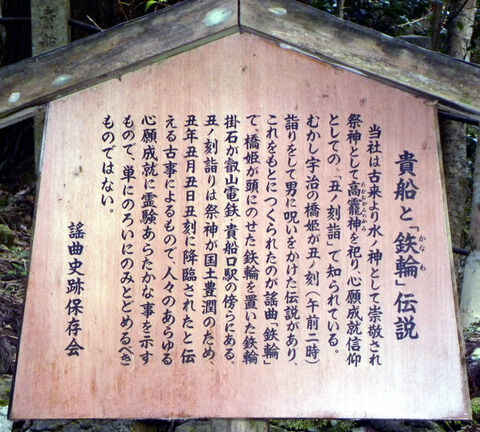 貴船と「鉄輪」伝説
かなわ
当社は古来より水ノ神として崇敬され
祭神として高龗神を祀り、心願成就信仰
としての「丑ノ刻詣」で知られている。
むかし宇治の橋姫が丑ノ刻(午前二時)
詣りをして男に呪いをかけた伝説があり、
これをもとにつくられたのが謡曲「鉄輪」
で、橋姫が頭にのせた鉄輪を置いた鉄輪
掛石が叡山電鉄・貴船口駅の傍らにある。
丑ノ刻詣りは祭神が国土豊潤のため、
丑年丑月丑日丑刻に降臨されたと伝
える古事によるもので、人々のあらゆる
心願成就に霊験あらたかな事を示す
もので、単にのろいにのみとどめる(べき)
ものではない。
謡曲史跡保存会
貴船